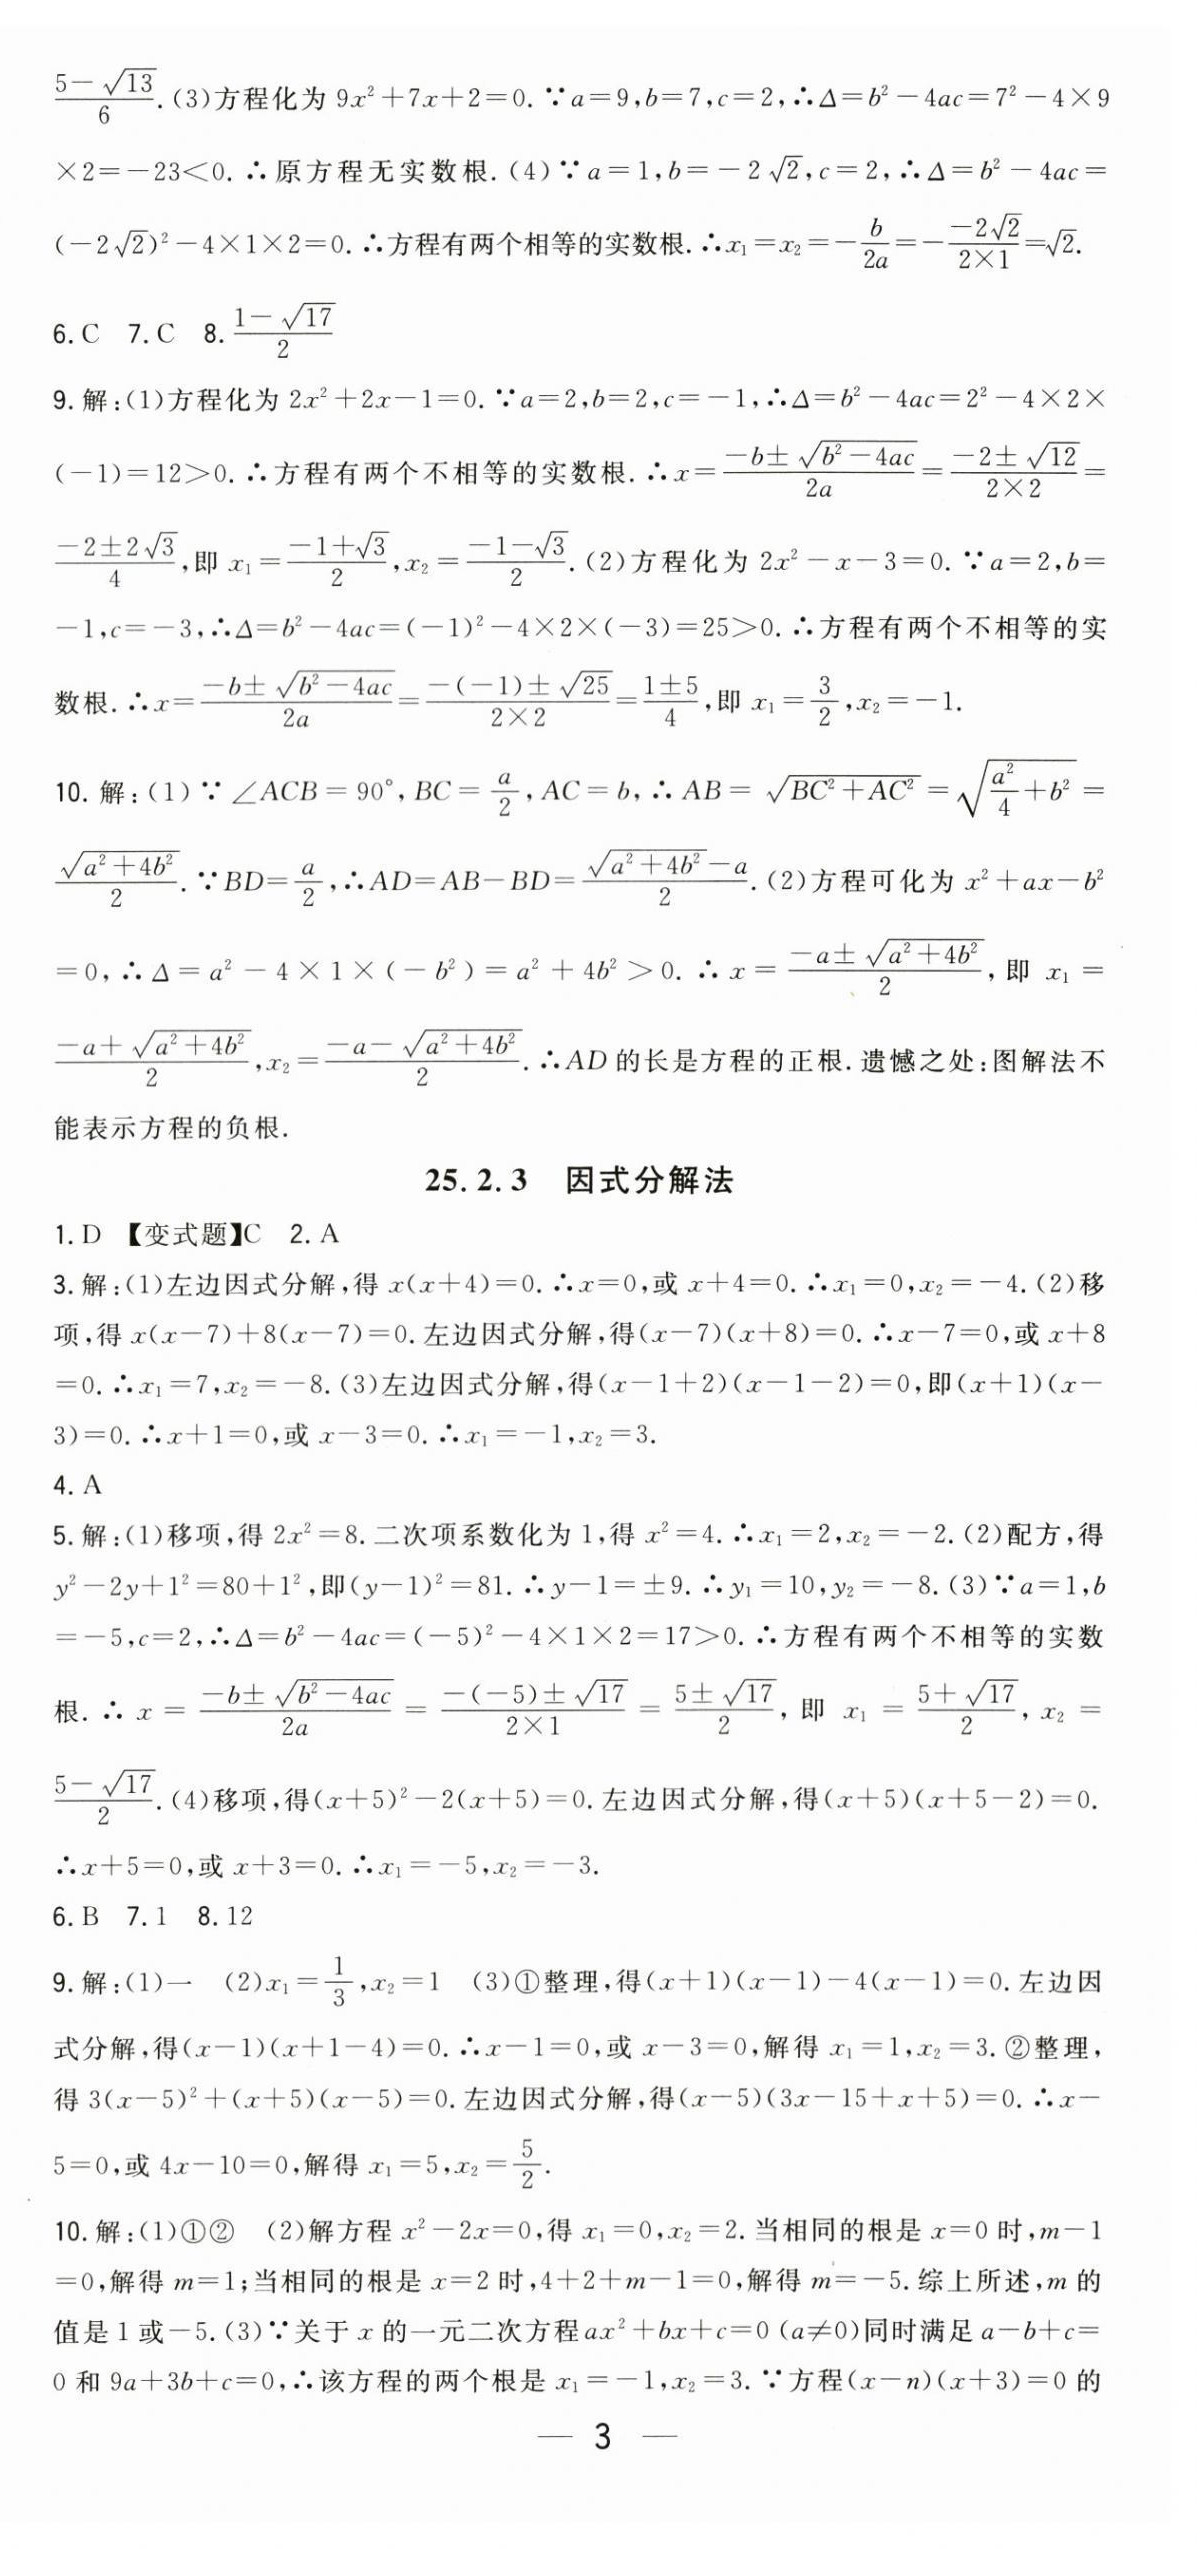 (5-√13)/6.(3)方程化为 9x²+7x+2=0.∵a=9,b=7,c=2,∴Δ=b²-4ac=7²-4×9
×2=-23<0.∴原方程无实数根.(4)∵a=1,b=-2√2,c=2,∴Δ=b²-4ac=
(-2√2)²-4×1×2=0.∴方程有两个相等的实数根.∴x₁=x₂=-b/(2a)=-(-2√2)/(2×1)=√2.
6.C 7.C 8.(1-√17)/2
9.解:(1)方程化为 2x²+2x-1=0.∵a=2,b=2,c=-1,∴Δ=b²-4ac=2²-4×2×
(-1)=12>0.∴方程有两个不相等的实数根.∴x=(-b±√(b²-4ac))/(2a)=(-2±√12)/(2×2)=
(-2±2√3)/4,即 x₁=(-1+√3)/2,x₂=(-1-√3)/2.(2)方程化为 2x²-x-3=0.∵a=2,b=
-1,c=-3,∴Δ=b²-4ac=(-1)²-4×2×(-3)=25>0.∴方程有两个不相等的实
数根.∴x=(-b±√(b²-4ac))/(2a)=(-(-1)±√25)/(2×2)=(1±5)/4,即 x₁=3/2,x₂=-1.
10.解:(1)∵∠ACB=90°,BC=a/2,AC=b,∴AB=√(BC²+AC²)=√(a²/4+b²)=
√(a²+4b²)/2.∵BD=a/2,∴AD=AB-BD=(√(a²+4b²)-a)/2.(2)方程可化为 x²+ax-b²
=0,∴Δ=a²-4×1×(-b²)=a²+4b²>0.∴x=(-a±√(a²+4b²))/2,即 x₁=
(-a+√(a²+4b²))/2,x₂=(-a-√(a²+4b²))/2.∴AD的长是方程的正根.遗憾之处:图解法不
能表示方程的负根.
25.2.3 因式分解法
1.D 【变式题】C 2.A
3.解:(1)左边因式分解,得 x(x+4)=0.∴x=0,或 x+4=0.∴x₁=0,x₂=-4.(2)移
项,得 x(x-7)+8(x-7)=0.左边因式分解,得(x-7)(x+8)=0.∴x-7=0,或 x+8
=0.∴x₁=7,x₂=-8.(3)左边因式分解,得(x-1+2)(x-1-2)=0,即(x+1)(x-
3)=0.∴x+1=0,或 x-3=0.∴x₁=-1,x₂=3.
4.A
5.解:(1)移项,得 2x²=8.二次项系数化为 1,得 x²=4.∴x₁=2,x₂=-2.(2)配方,得
y²-2y+1²=80+1²,即(y-1)²=81.∴y-1=±9.∴y₁=10,y₂=-8.(3)∵a=1,b
=-5,c=2,∴Δ=b²-4ac=(-5)²-4×1×2=17>0.∴方程有两个不相等的实数
根.∴x=(-b±√(b²-4ac))/(2a)=(-(-5)±√17)/(2×1)=(5±√17)/2,即 x₁=(5+√17)/2,x₂=
(5-√17)/2.(4)移项,得(x+5)²-2(x+5)=0.左边因式分解,得(x+5)(x+5-2)=0.
∴x+5=0,或 x+3=0.∴x₁=-5,x₂=-3.
6.B 7.1 8.12
9.解:(1)一 (2)x₁=1/3,x₂=1 (3)①整理,得(x+1)(x-1)-4(x-1)=0.左边因
式分解,得(x-1)(x+1-4)=0.∴x-1=0,或 x-3=0,解得 x₁=1,x₂=3.②整理,
得 3(x-5)²+(x+5)(x-5)=0.左边因式分解,得(x-5)(3x-15+x+5)=0.∴x-
5=0,或 4x-10=0,解得 x₁=5,x₂=5/2.
10.解:(1)①② (2)解方程 x²-2x=0,得 x₁=0,x₂=2.当相同的根是 x=0 时,m-1
=0,解得 m=1;当相同的根是 x=2 时,4+2+m-1=0,解得 m=-5.综上所述,m 的
值是 1 或-5.(3)∵关于 x 的一元二次方程ax²+bx+c=0(a≠0)同时满足 a-b+c=
0 和 9a+3b+c=0,∴该方程的两个根是 x₁=-1,x₂=3.∵方程(x-n)(x+3)=0 的
— 3 —